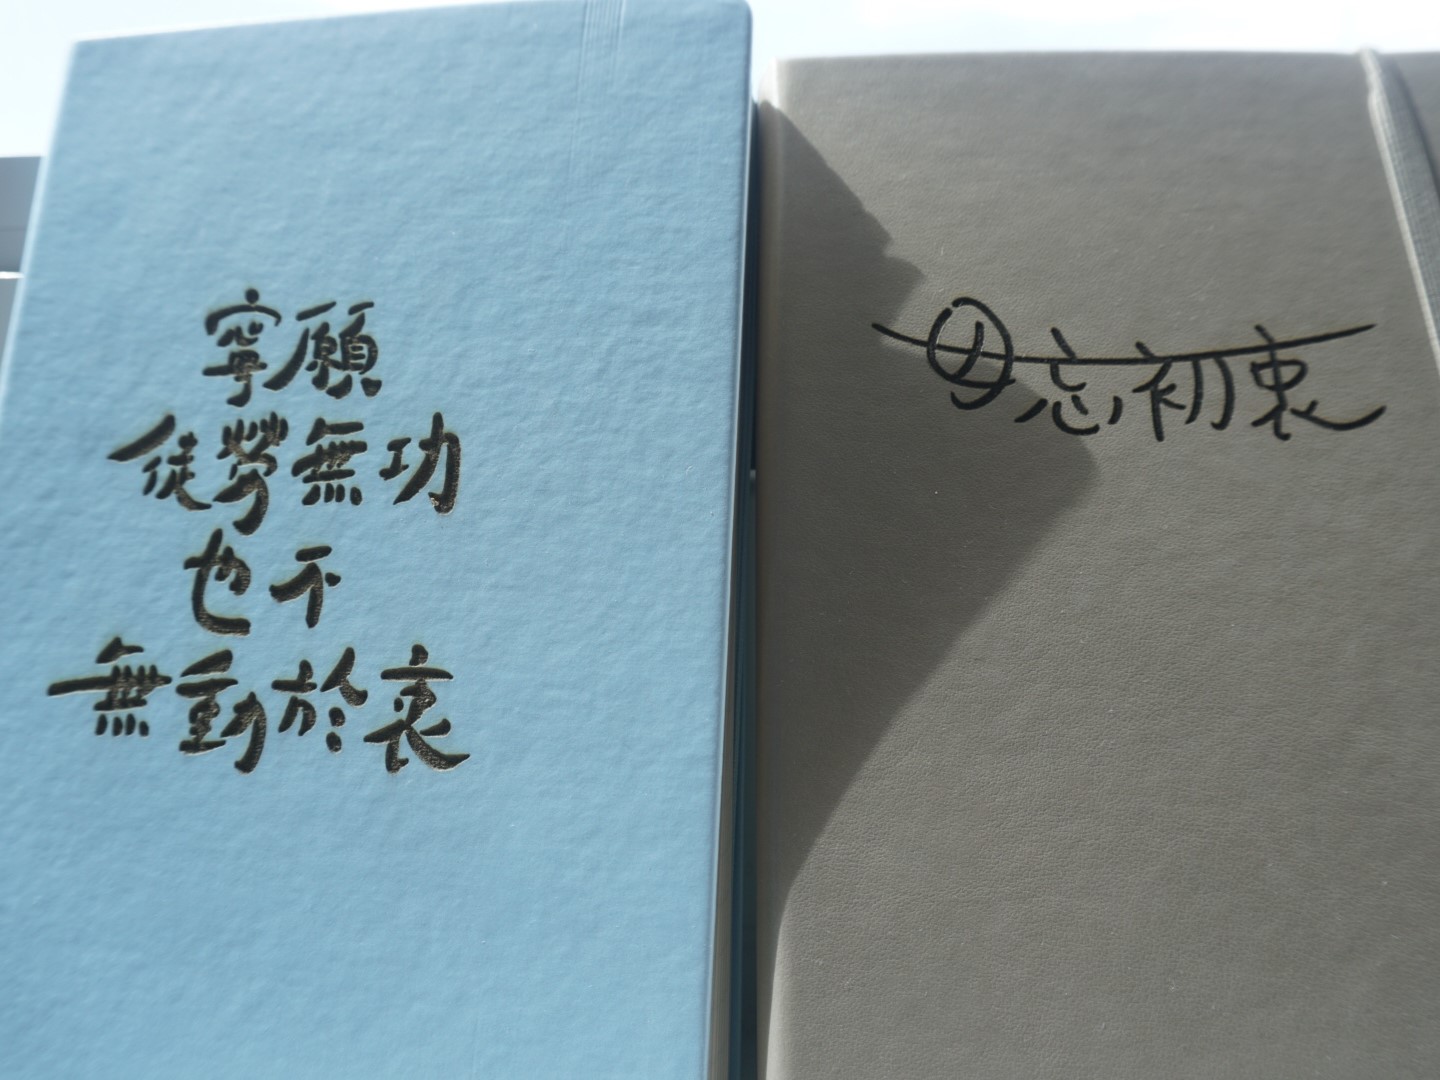 寧願
徒勞無功
也不
無動於衷
毋忘初衷